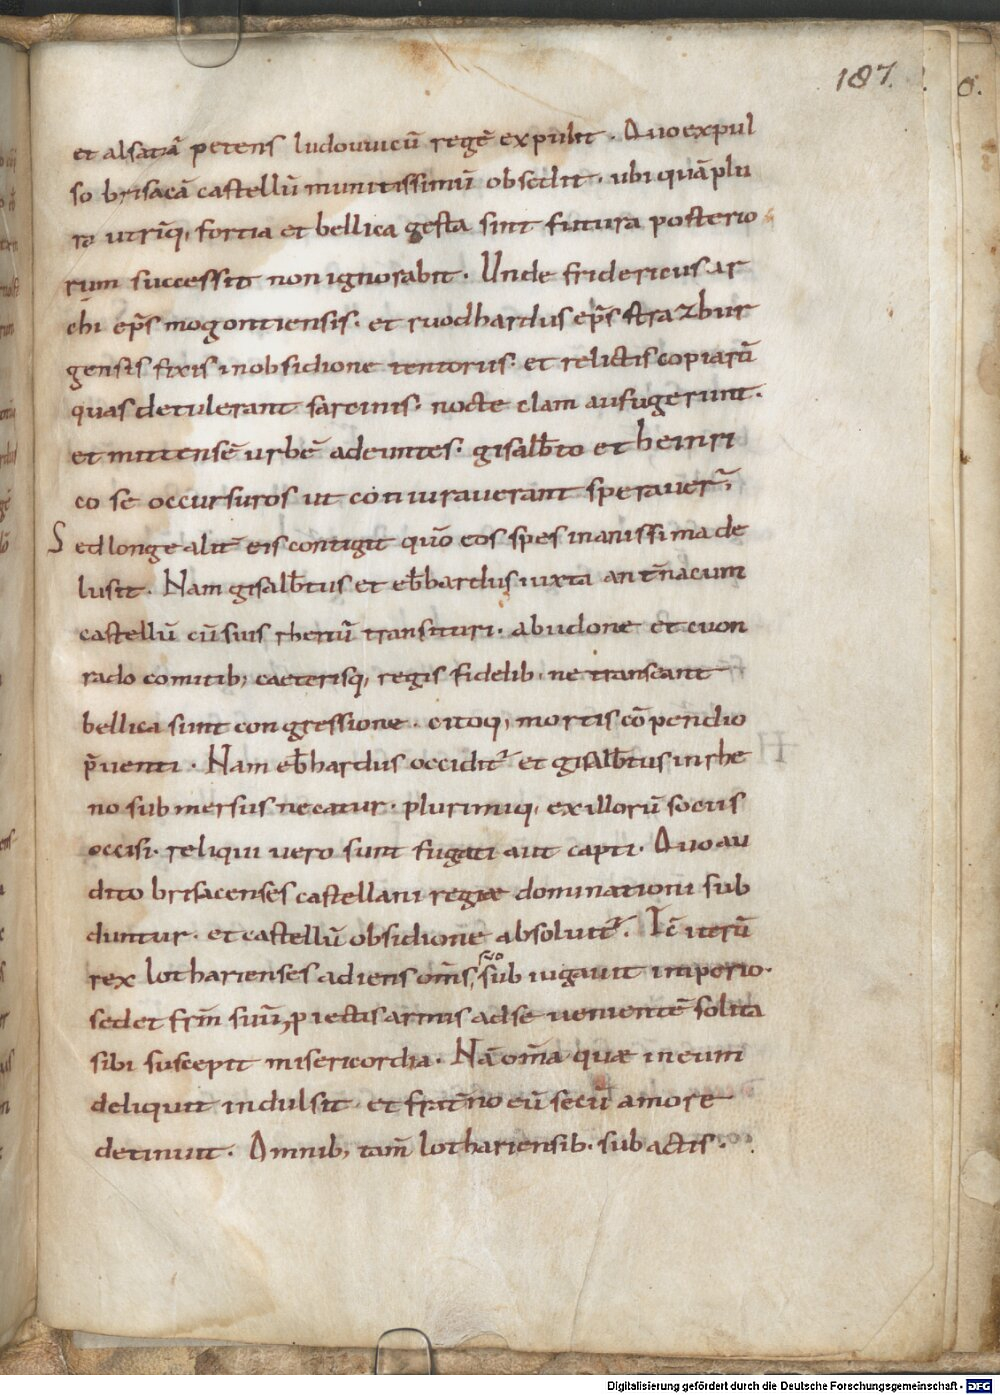 187.
et alsatiā petens ludouuicū regē expulit . Quo expul
so brisacā castellū munitissimū obsedit . ubi quā plu
ra utriq; fortia et bellica gesta sint futura posterio
rum successio non ignorabit . Unde fridericus ar
chi ep̄s mogontiensis . et ruodhardus ep̄s strazbur
gensis fixis in obsidione tentoriis . et relictis copiarū
quas detulerant sarcinis . nocte clam aufugerunt .
et mittensē urbē adeuntes . gisalb̄to et heinri
co se occursuros ut coniurauerant sperauer̄ .
Sed longe alit̄ eis contigit quō eos spes inanissima de
lusit . Nam gisalb̄tus et eb̄hardus iuxta antn̄acum
castellū cū suis rhenū transituri . ab udone et cuon
rado comitib; caeterisq; regis fidelib; ne transeant
bellica sunt congressione . citoq; mortis cōpendio
p̄uenti . Nam eb̄hardus occidit᷑ et gisalb̄tus in rhe
no submersus necatur . plurimiq; ex illorū sociis
occisi . reliqui uero sunt fugati aut capti . Quo au
dito brisacenses castellani regiæ dominationi sub
duntur . et castellū obsidione absoluit᷑ . Ic̄ iterū
rex lotharienses adiens om̄s, suo subiugauit imperio .
sed et fr̄m suū, p̱iectis armis ad se uenientē solita
sibi suscepit misericordia . Nā om̄a quæ in eum
deliquit indulsit et frat̄no eū secū amore
detinuit . Omnib; tam̄ lothariensib . subactis .
Digitalisierung gefördert durch die Deutsche Forschungsgemeinschaft - DFG